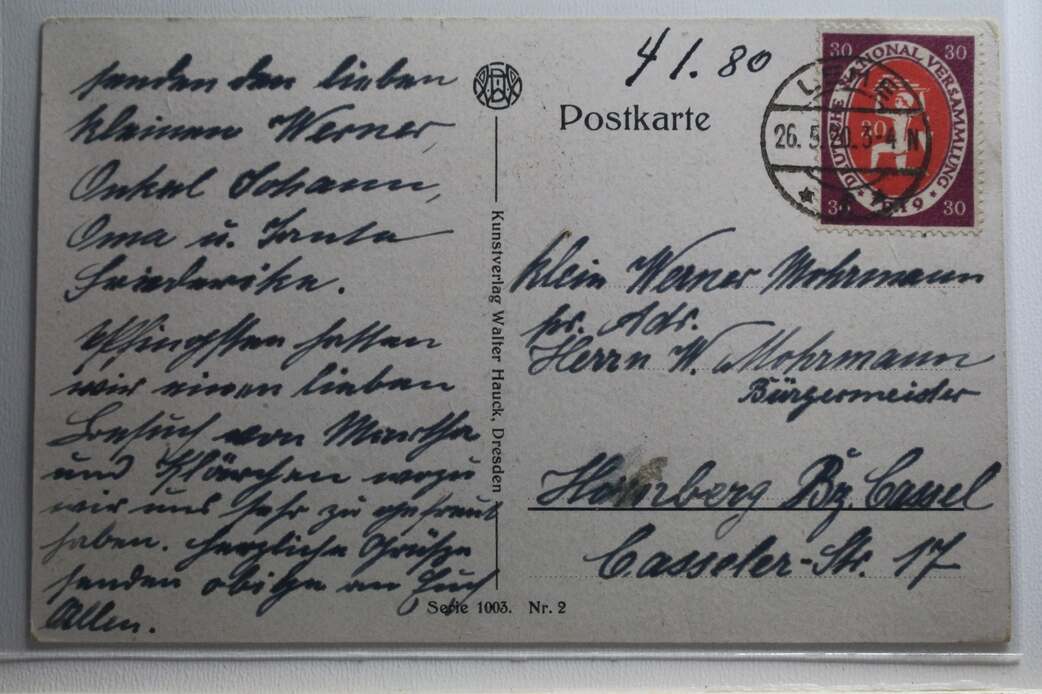 senden den lieben
kleinen Werner,
Onkel Johann,
Oma u. Tante
Friederike.
Pfingsten hatten
wir einen lieben
Besuch von Martha
und Klärchen wozu
wir uns sehr zu gefreut
haben. Herzliche Grüße
senden obige an Euch
Allen.
Kunstverlag Walter Hauck, Dresden
Serie 1003. Nr. 2
4 1. 80
Postkarte
30 30
DEUTSCHE NATIONAL VERSAMMLUNG
30
1919
30 30
26. 5. 20. 3-4 N
Klein Werner Mohrmann
pr. Adr.
Herrn W. Mohrmann
Bürgermeister
Homberg Bz. Cassel
Casseler-Str. 17